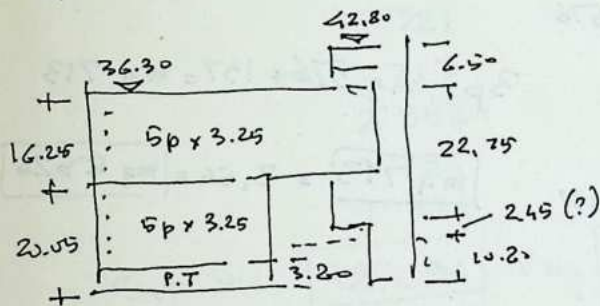 42.80
36.30
6.50
16.25
5p x 3.25
22,75
5p x 3.25
2.45 (?)
20.05
P.T
3.20
10.20